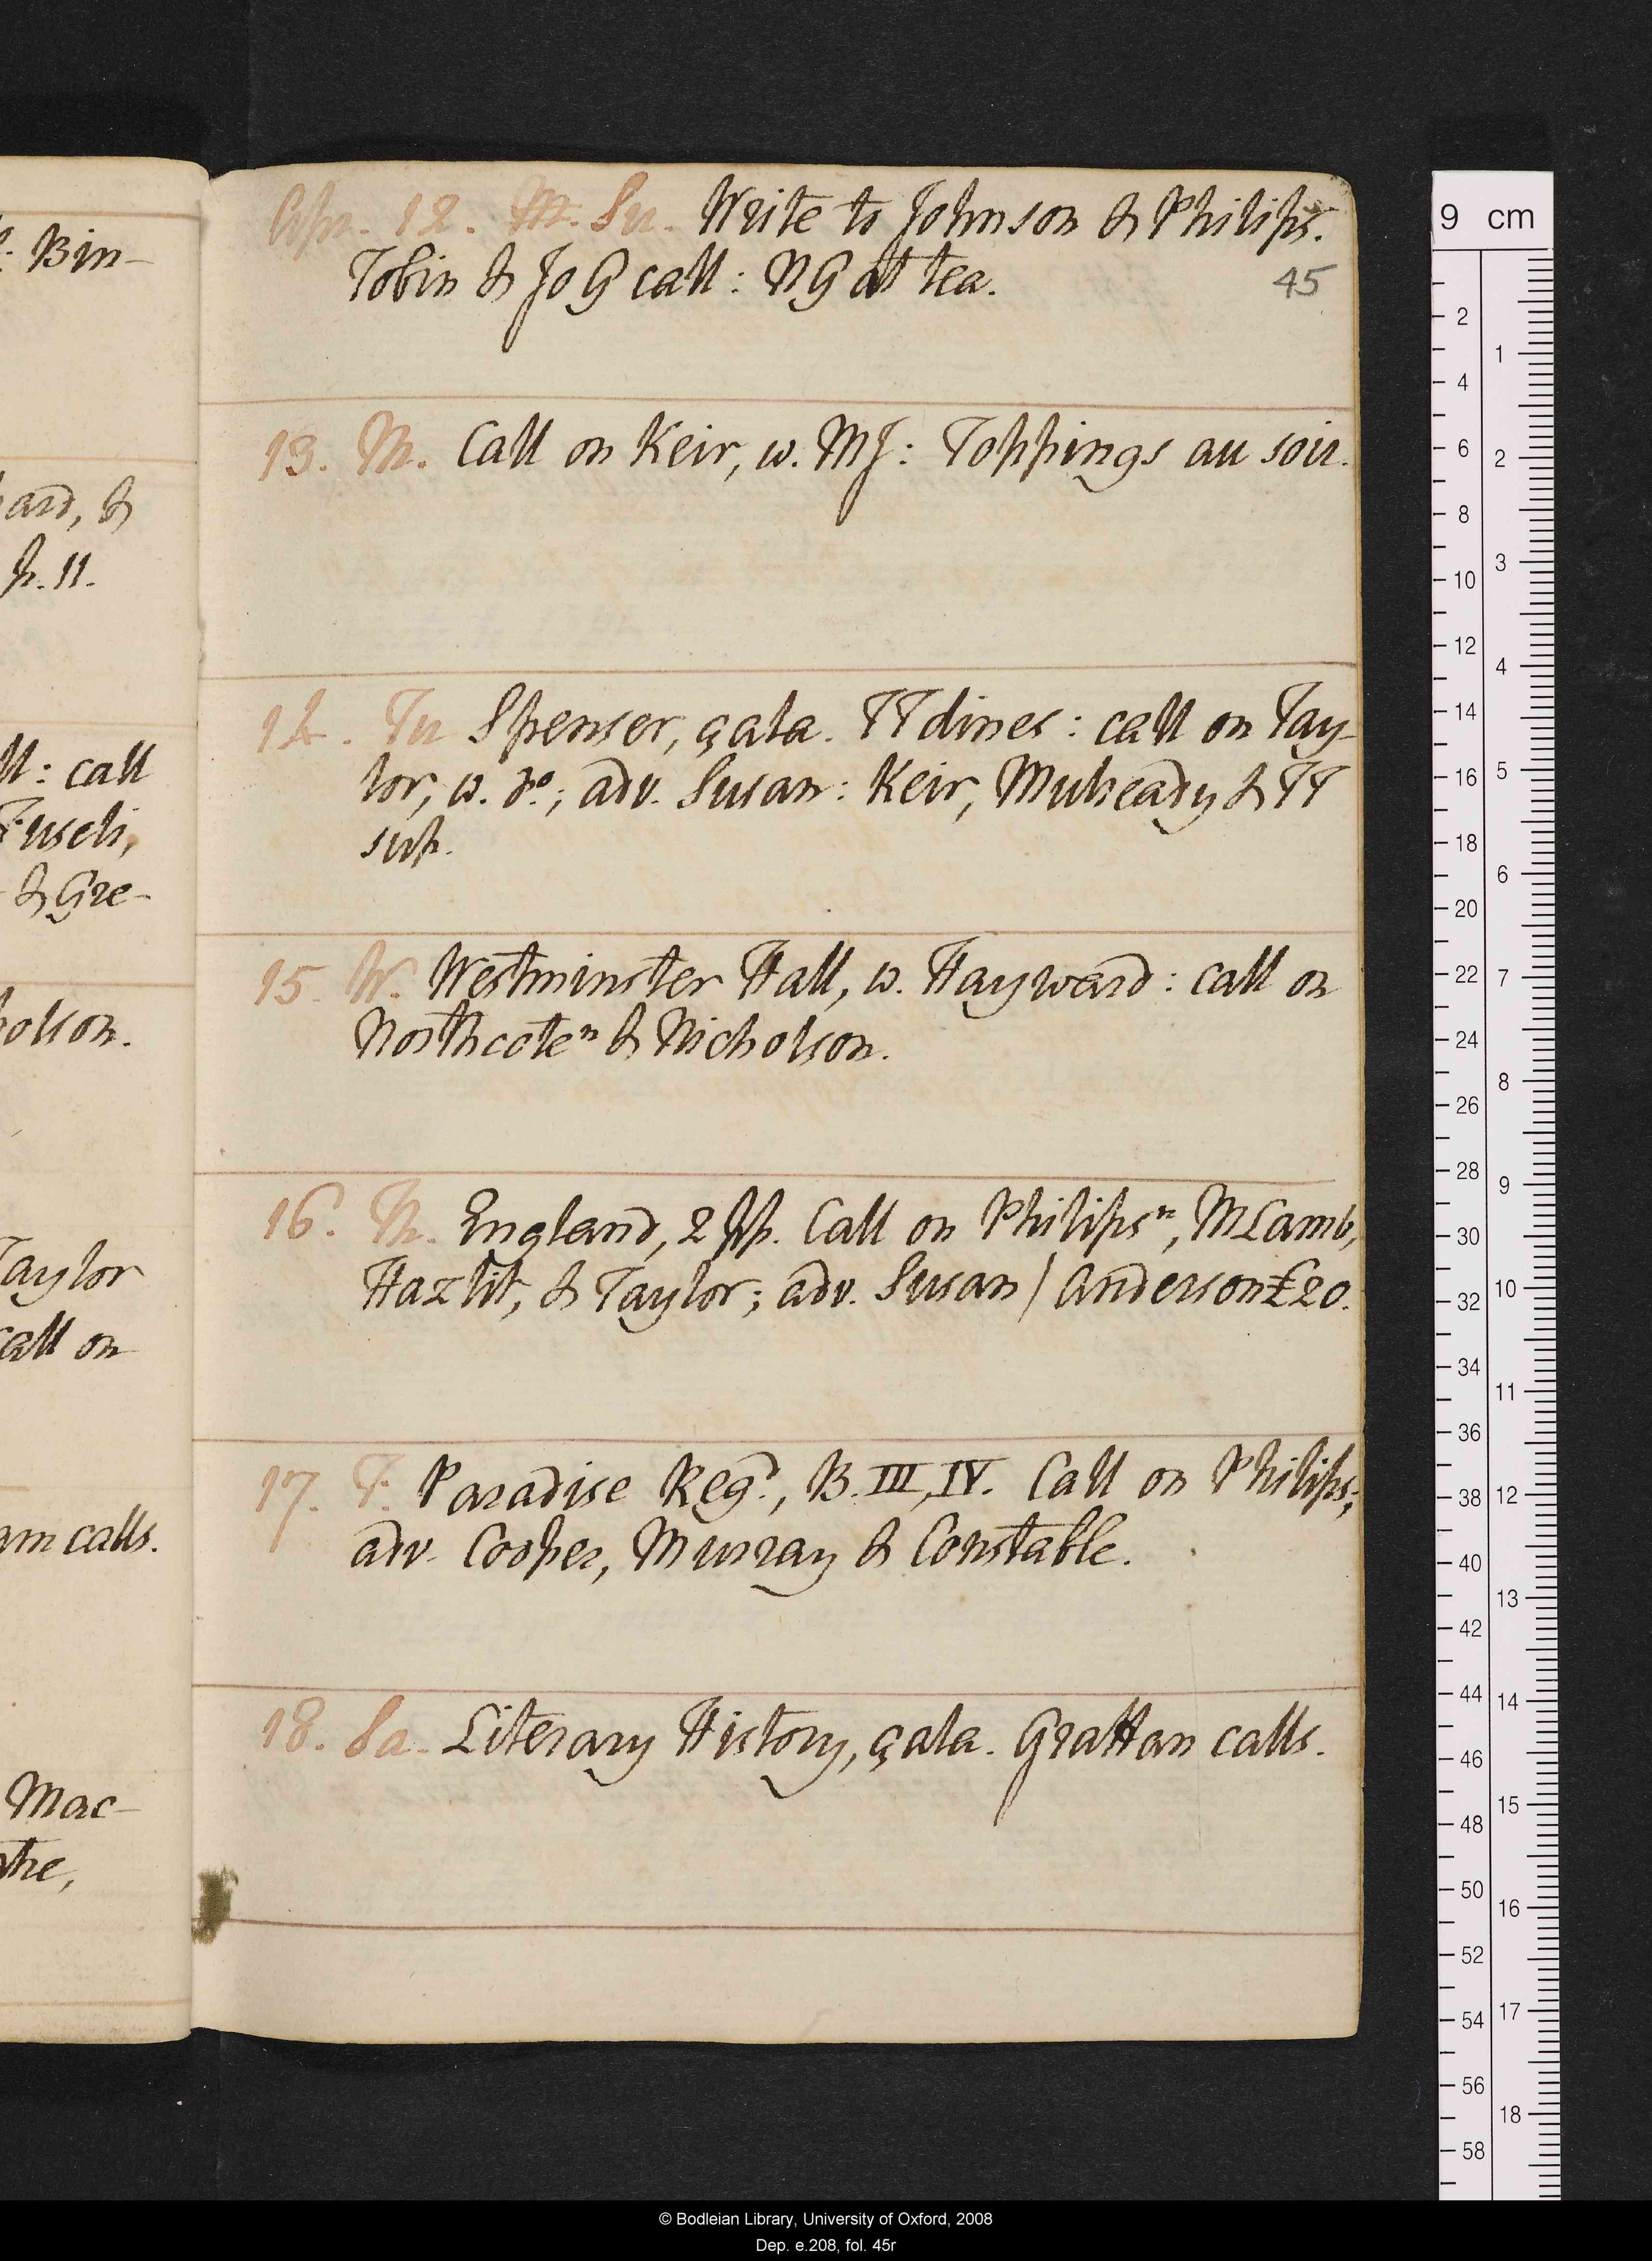 : Bin-
ard, &
p. 11.
ll: call
Fuseli,
& Gre-
olson.
Taylor
call on
am calls.
Mac-
the,
Apr. 12. M. Su. Write to Johnson & Philips.
Tobin & Jo G call: NG at tea.
45
13. M. Call on Keir, w. MJ: Toppings au soir.
14. Tu Spenser, çala. TT dines: call on Tay-
lor, w. do.; adv. Susan: Keir, Mulready & TT
sup.
15. W. Westminster Hall, w. Hayward: call on
Northcote n & Nicholson.
16. Th. England, 2 pp. Call on Philips n, MLamb,
Hazlit, & Taylor; adv. Susan / Anderson £20.
17. F. Paradise Regd., B. III, IV. Call on Philips;
adv. Cooper, Murray & Constable.
18. Sa. Literary History, çala. Grattan calls.
9 cm
2
4
6
8
10
12
14
16
18
20
22
24
26
28
30
32
34
36
38
40
42
44
46
48
50
52
54
56
58
1
2
3
4
5
6
7
8
9
10
11
12
13
14
15
16
17
18
© Bodleian Library, University of Oxford, 2008
Dep. e.208, fol. 45r